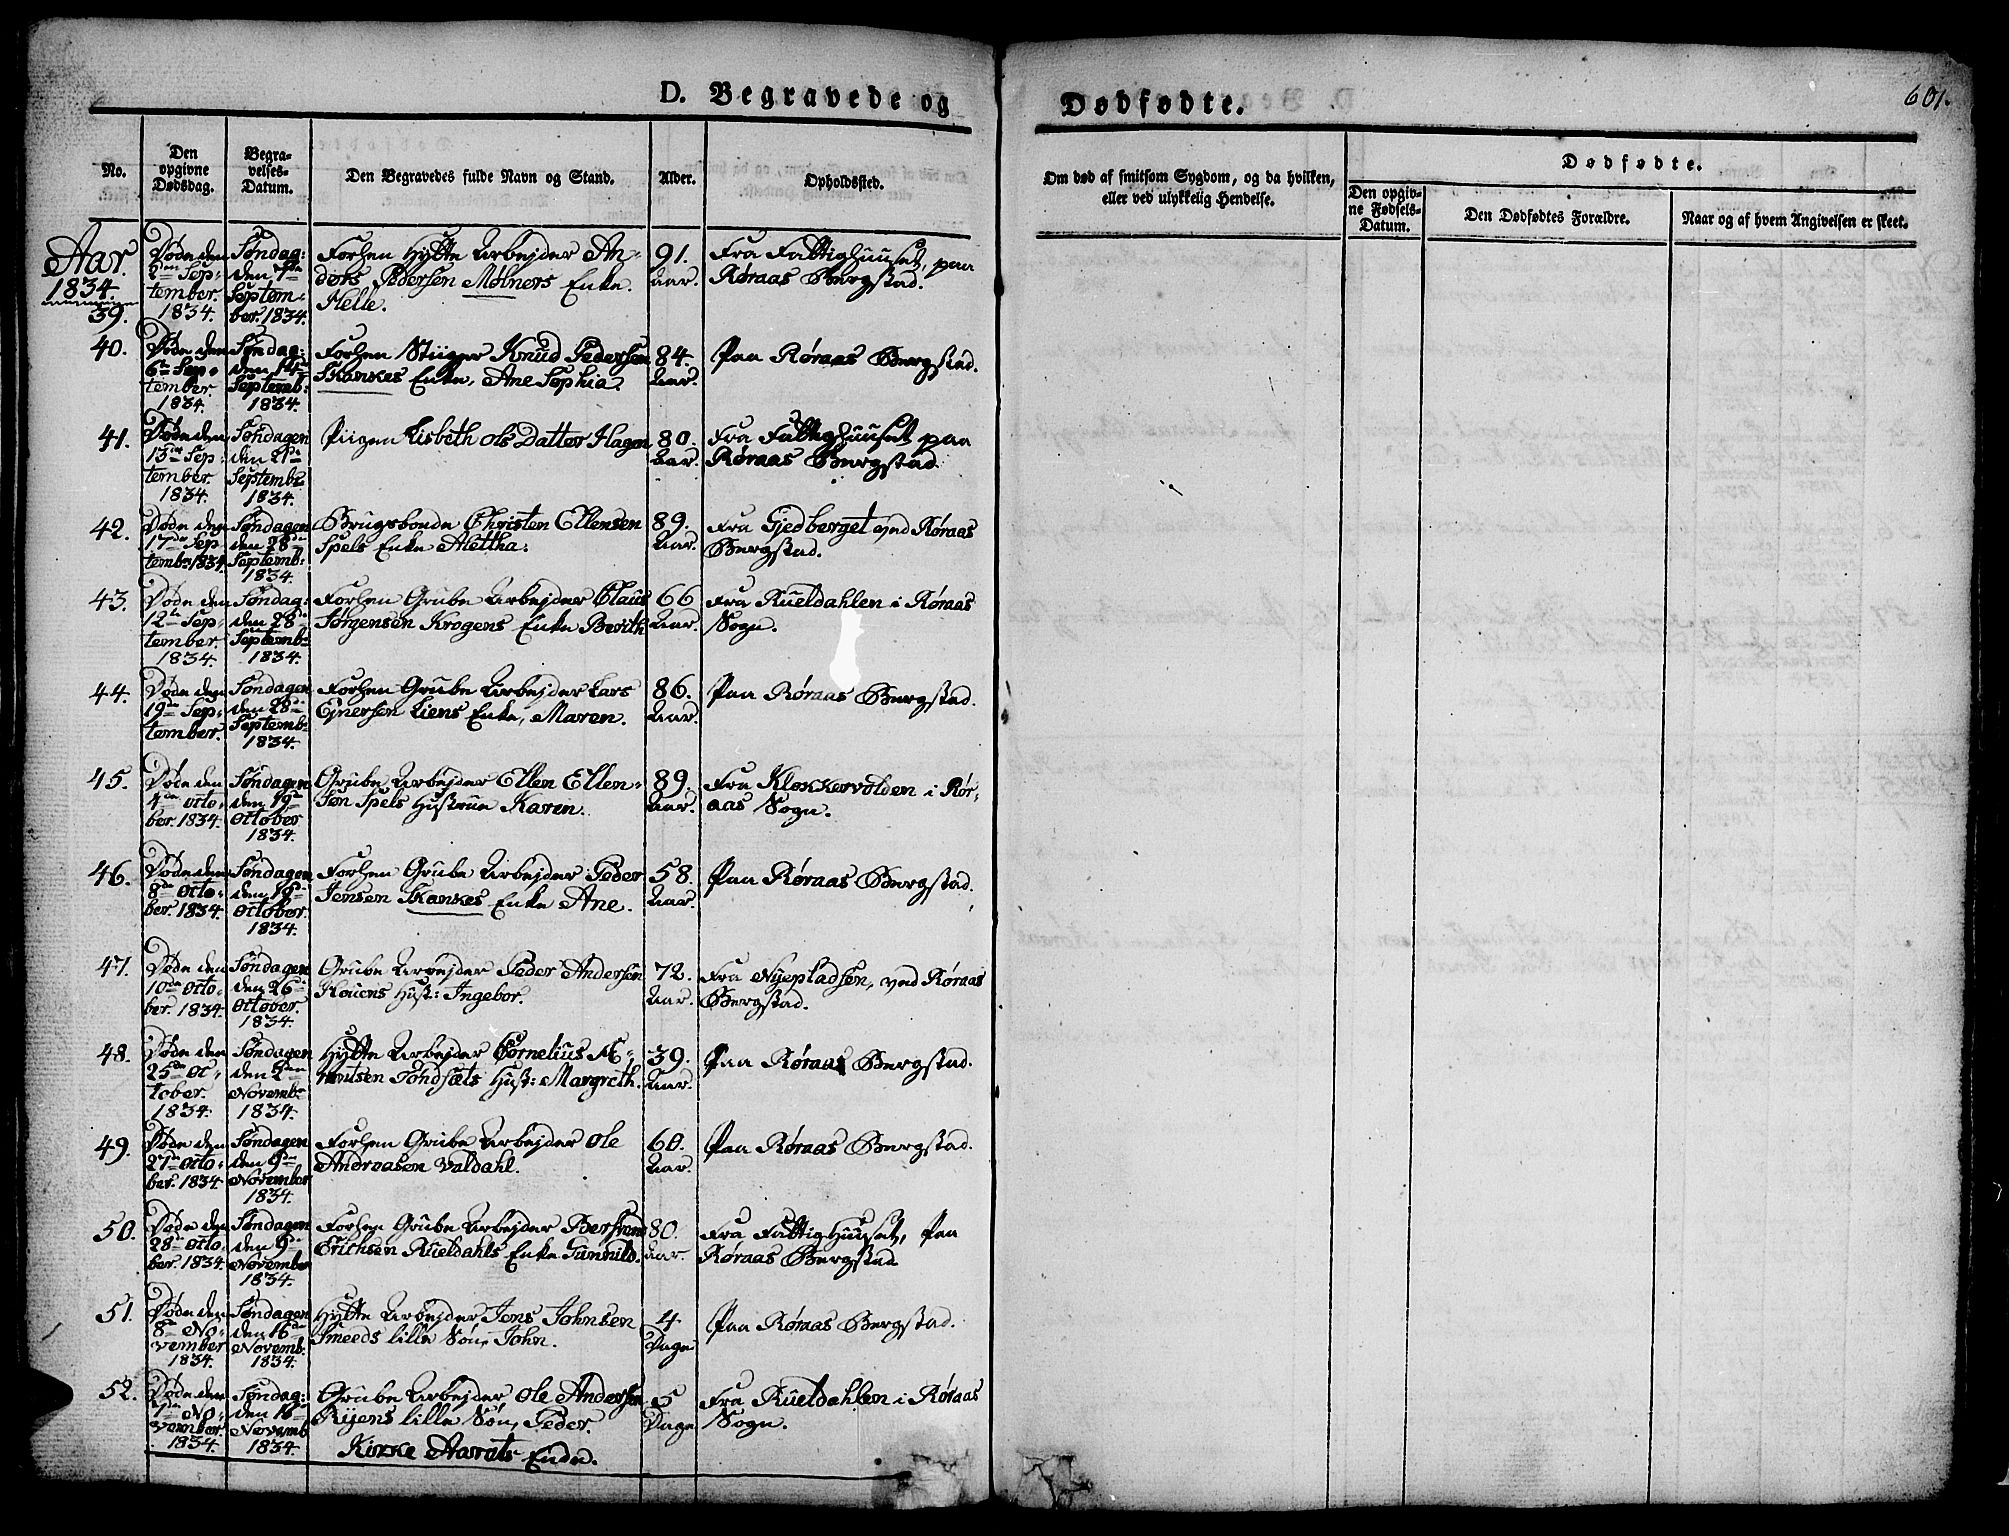 D. Begravede og Dødfødte.
601.
No.
Den opgivne Dødsdag.
Begravelses-Datum.
Den Begravedes fulde Navn og Stand.
Alder.
Opholdssted.
Om død af smitsom Sygdom, og da hvilken,
eller ved ulykkelig Hendelse.
Dødfødte.
Den opgivne Fødsels-Datum.
Den Dødfødtes Forældre.
Naar og af hvem Angivelsen er skeet.
Aar
1834.
39.
Døde den
Sep-
tember.
1834.
Søndag:
den 7de
Septem-
ber. 1834.
Forhen Hytte Arbejder An-
ders Pedersen Mølners Enke.
Helle.
91.
Aar.
Fra Fattighuuset, paa
Røraas Bergstad.
40.
Døde den
6te Sep-
tember.
1834.
Søndag:
den 14de
Septemb:
1834.
Forhen Stiiger Knud Pedersen
Skankes Enke, Ane Sophia.
84.
Aar.
Paa Røraas Bergstad.
41.
Døde den
13de Sep-
tember.
1834.
Søndagen
den 21de
Septembr
1834.
Piigen Lisbeth Ols Datter Hagen
80.
Aar.
Fra Fattighuuset paa
Røraas Bergstad.
42.
Døde den
17de Sep
tembr 1834.
Søndagen
den 28de
Septemb:
1834.
Brugsbonde Christen Ellensen
Spels Enke Alettha.
89.
Aar.
Fra Gjedberget ved Røraas
Bergstad.
43.
Døde den
12te Sep-
tember.
1834.
Søndag:
den 28de
Septemb:
1834.
Forhen Grube Arbejder Claus
Jørgensen Krogens Enke Berith
66
Aar.
Fra Rueldahlen i Røraas
Sogn.
44.
Døde den
19de Sep-
tember.
Søndagen
den 28de
Septemb:
1834.
Forhen Grube Arbejder Lars
Ejnersen Liens Enke, Maren.
86.
Aar.
Paa Røraas Bergstad.
45.
Døde den
4de Octo-
ber. 1834.
Søndagen
den 19de
October
1834.
Grube Arbejder Ellen Ellen-
sen Spels Hustrue Karen.
89.
Aar.
Fra Klokkervolden i Rør-
aas Sogn.
46.
Døde den
8de Octo-
ber. 1834.
Søndagen
den 19de
October.
1834.
Forhen Grube Arbejder Peder
Jensen Skankes Enke Ane.
58.
Aar.
Paa Røraas Bergstad.
47.
Døde den
10de Octo-
ber. 1834.
Søndagen
den 26de
October.
1834.
Grube Arbejder Peder Andersen
Hust: Ingebor.
72.
Aar.
Fra Nyepladsen, ved Røraas
Bergstad.
48.
Døde den
25de Oc-
tober.
1834.
Søndagen
den 2den
Novembr
1834.
Hytte Arbejder Cornelius
Tøndsæts Hust: Margreth.
39.
Aar.
Paa Røraas Bergstad.
49.
Døde den
27de Octo-
ber. 1834
Søndagen
den 9de
November
1834.
Forhen Grube Arbejder Ole
Andreasen Valdahl.
60.
Aar.
Paa Røraas Bergstad.
50.
Døde den
28de Octo-
ber. 1834
Søndagen
den 9de
November
1834.
Forhen Grube Arbejder Bersvend
Erichsen Rueldahls Enke Gunnild.
80.
Aar.
Fra Fattighuuset, Paa
Røraas Bergstad
51.
Døde den
8de No-
vember
1834.
Søndagen
den 16de
Novemb.
1834.
Hytte Arbejder Jens Johnsen
Smeeds lille Søn, John.
4
Dage
Paa Røraas Bergstad.
52.
Døde den
No-
vember.
1834.
Søndag:
den 16de
Novemb
1834.
Grube Arbejder, Ole Andersen
Ryens lille Søn, Peder.
5
Dage
Fra Rueldahlen i Røraas
Sogn.
Kirke Aarets Ende.